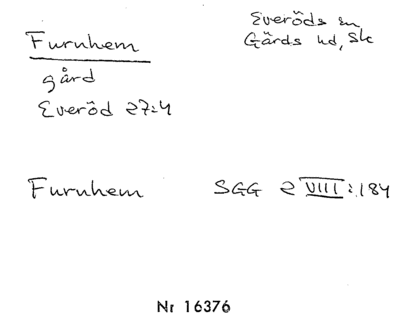 Furuhem
gård
Everöd 27:4
Everöds sn
Gärds hd, Sk
Furuhem SGG 2 VIII:184
Nr 16376